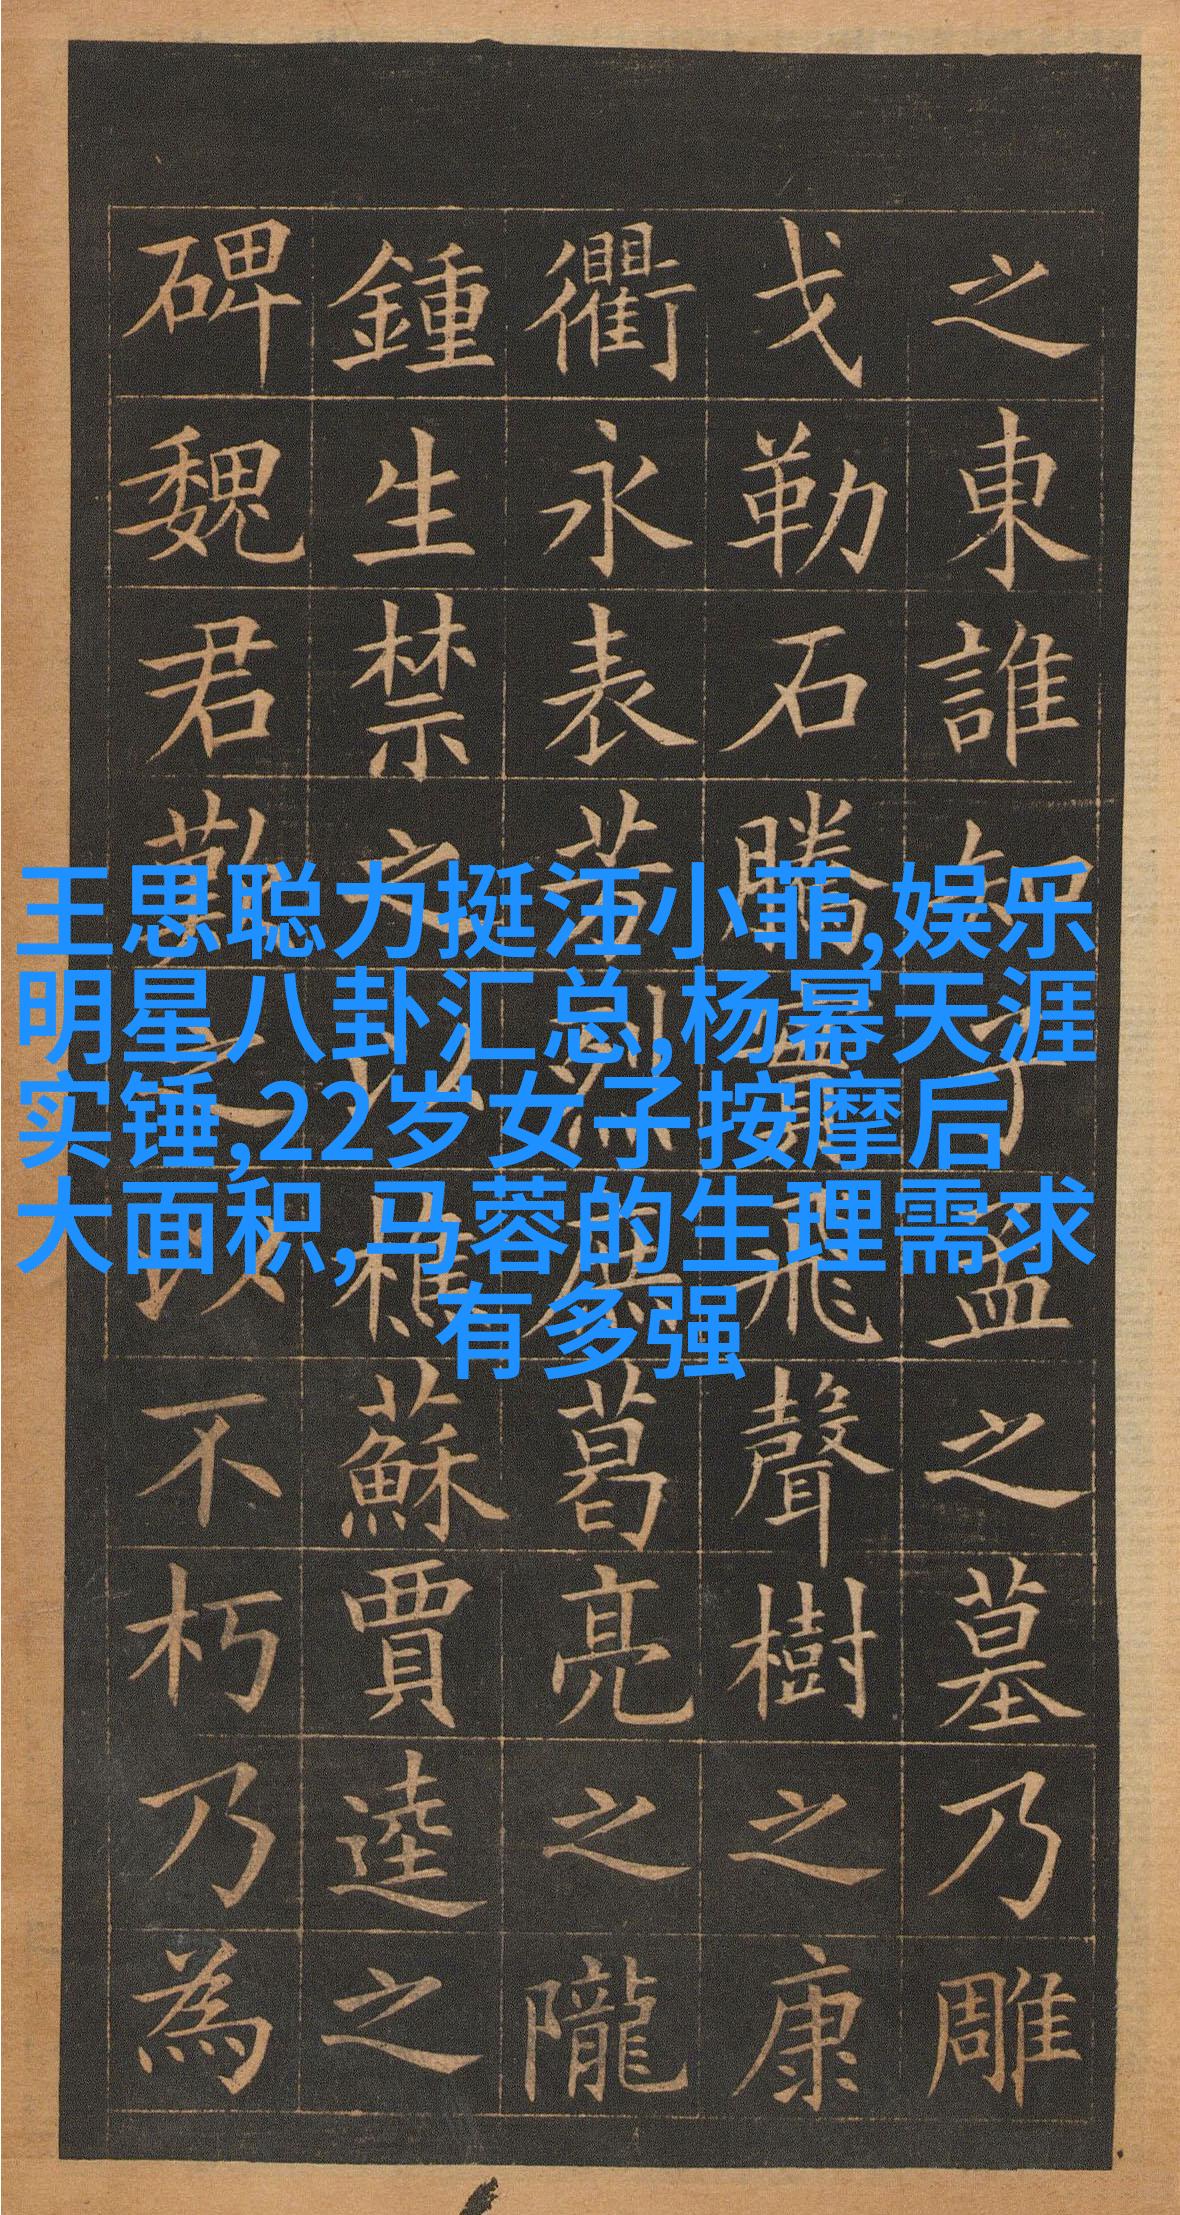 之東誰知子孟之墓乃雕
戈勒石騰實飛聲樹之康
衢永表芳烈庶葛亮之隴
鍾生禁之以樵蘇賈逵之
碑魏君之以不朽乃為
王思聪力挺汪小菲,娱乐
明星八卦汇总,杨幂天涯
实锤,22岁女子按摩后
大面积,马蓉的生理需求
有多强